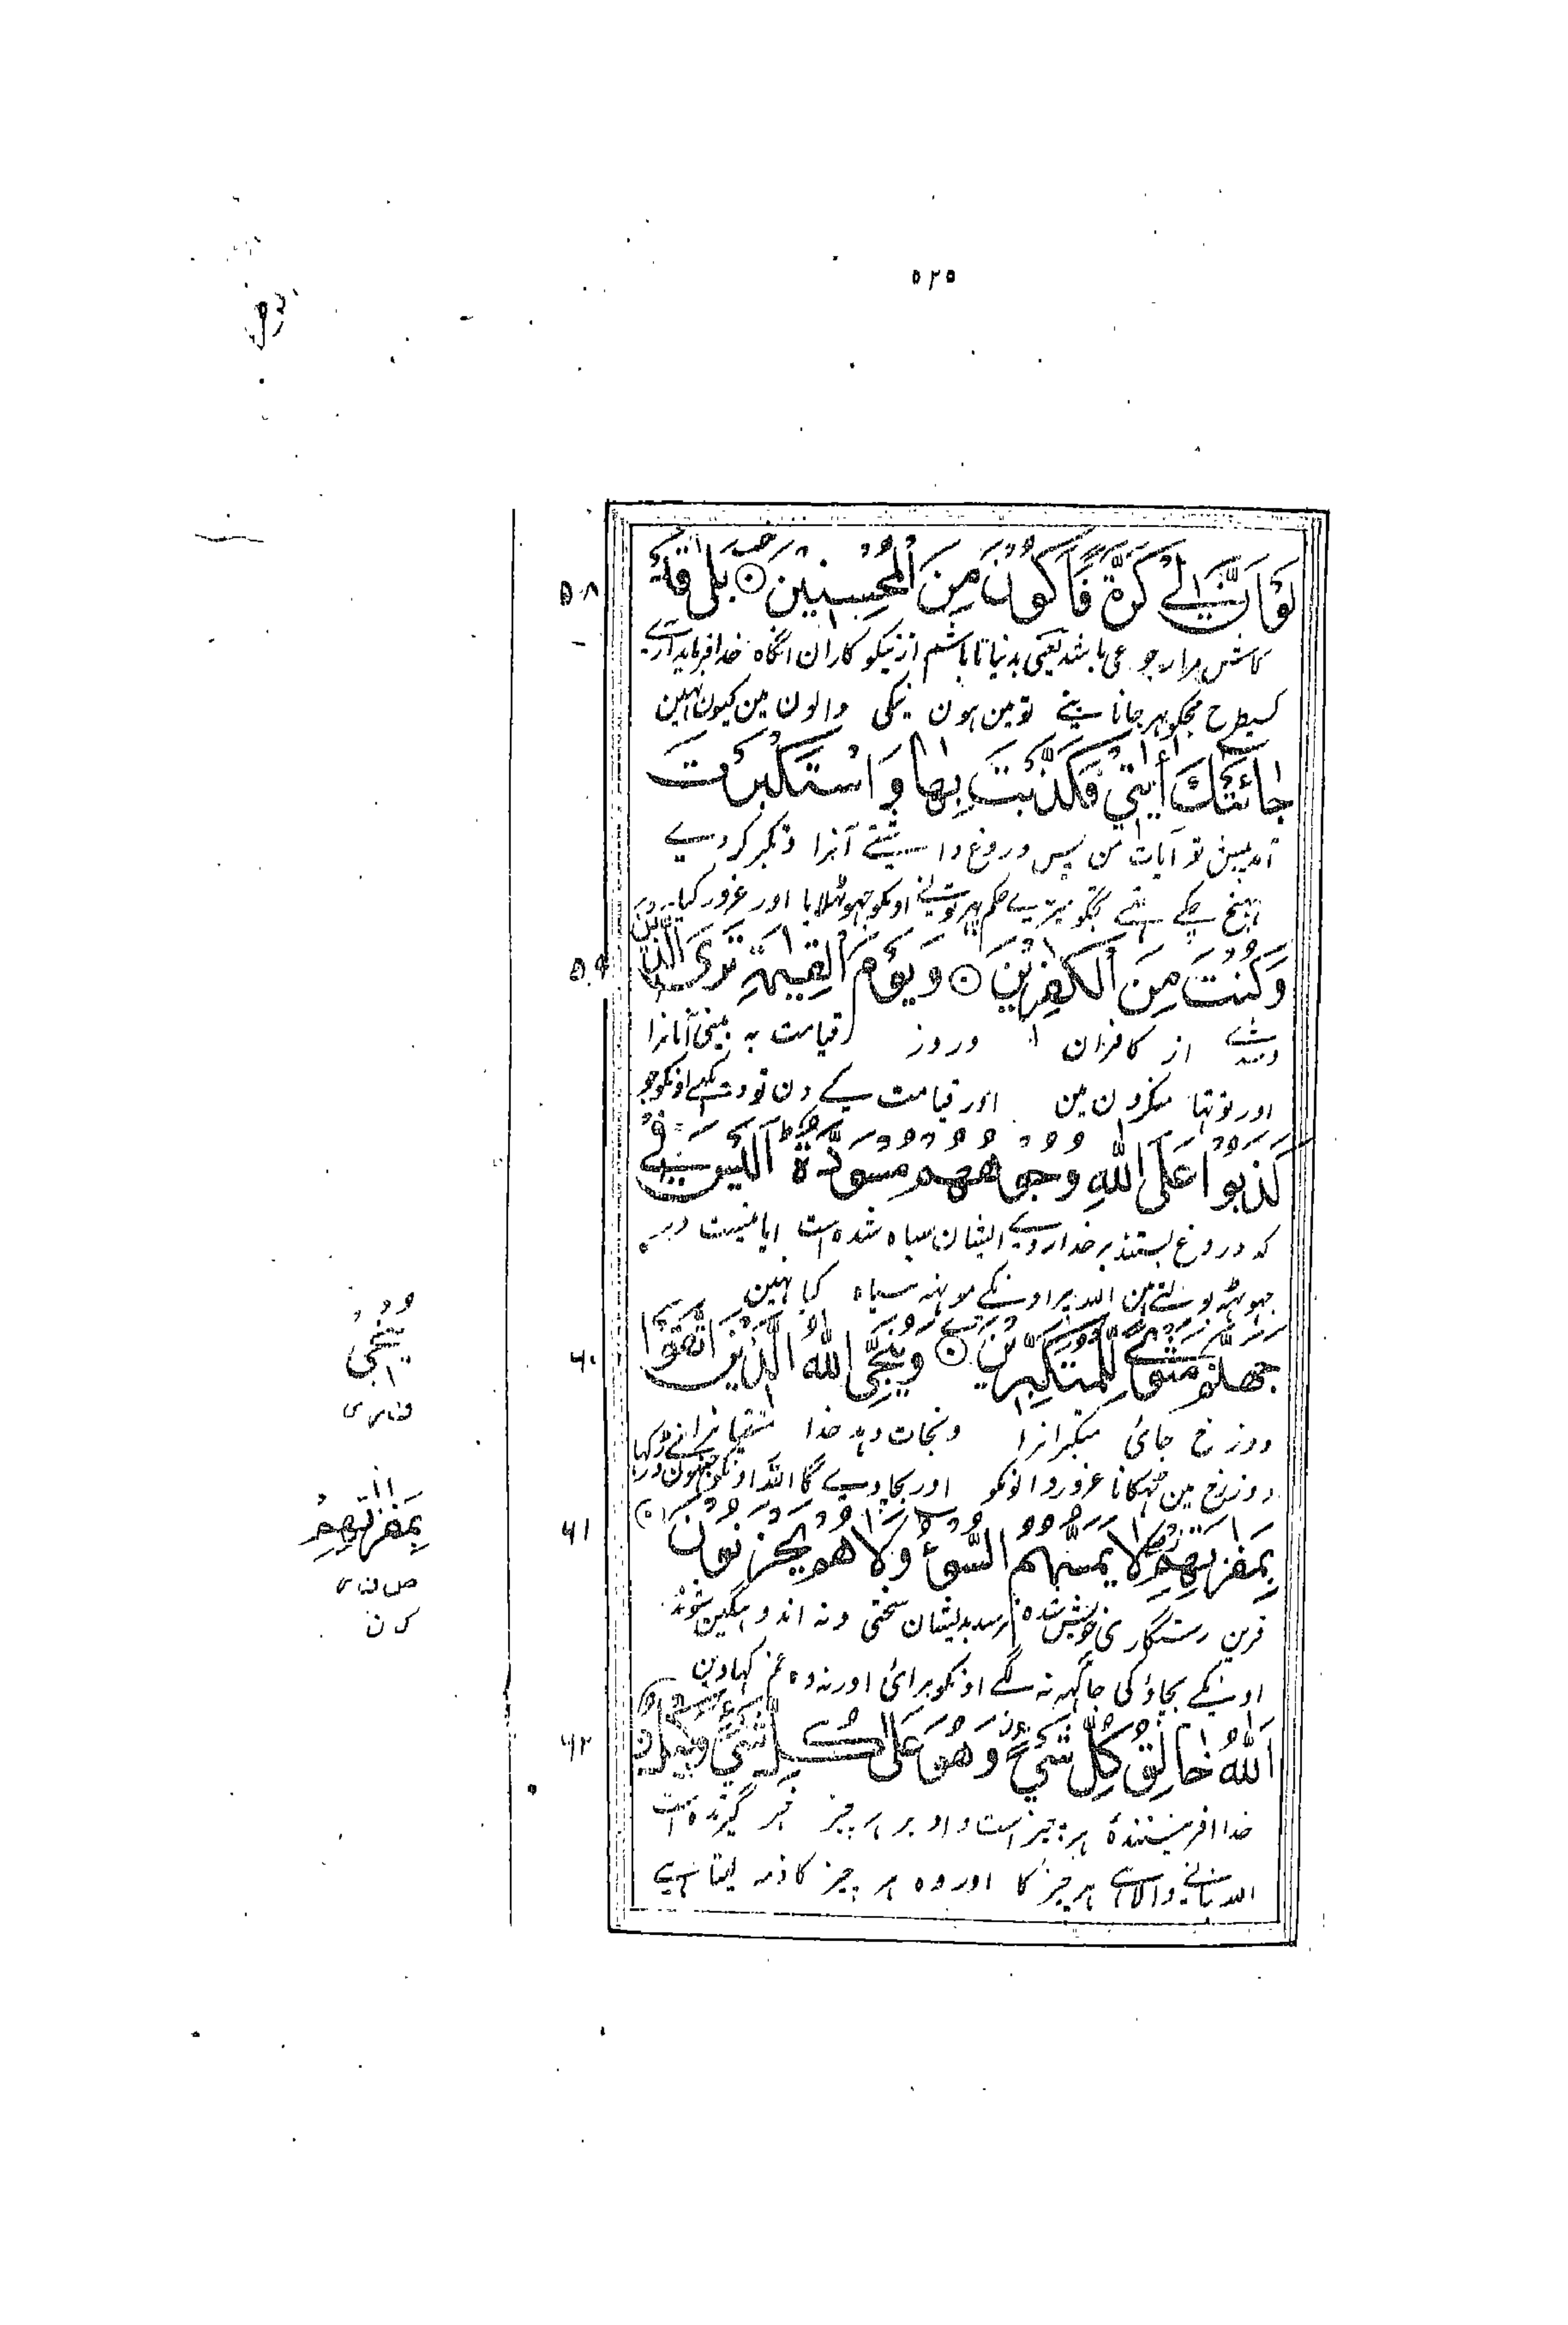 ۵۲۵
۵۸
لَوْ اَنَّ لِیْ كَرَّةً فَاَكُوْنَ مِنَ الْمُحْسِنِیْنَ ۝ بَلٰی قَدْ
کاش مرا رجوعی باشد یعنی بدنیا تا باشم از نیکو کاران آنگاه خدا فرماید آرے
کسیطرح مجکو پهر جانا بنے تو مین ہون نیکی والون مین کیون نہین
جَآئَتْكَ اٰیٰتِیْ فَكَذَّبْتَ بِهَا وَ اسْتَكْبَرْتَ
آمد پیش تو آیات من پس دروغ داشتے آنرا و تکبر کردے
پہنچ چکے تہے تجکو میرے حکم پہر تونے اونکو جہوٹہلایا اور غرور کیا
۵۹
وَكُنْتَ مِنَ الْكٰفِرِیْنَ ۝ وَ یَوْمَ الْقِیٰمَةِ تَرَی الَّذِیْنَ
و شدے از کافران و روز قیامت به بینی آنانرا
اور تو تہا منکرون مین اور قیامت کے دن تو دیکہے اونکو جو
كَذَبُوْا عَلَی اللّٰهِ وُجُوْهُهُمْ مُسْوَدَّةٌ اَلَیْسَ فِیْ
که دروغ بستند بر خدا روے ایشان سیاه شده است ایا نیست در
جہوٹہ بولتے ہین اللہ پر اونکے مونہہ سیاہ کیا نہین
۶۰
جَهَنَّمَ مَثْوًی لِلْمُتَكَبِّرِیْنَ ۝ وَیُنَجِّی اللّٰهُ الَّذِیْنَ اتَّقَوْا
دوزخ جائی متکبرانرا و نجات دهد خدا متقیانرا
دوزخ مین ٹہکانا غرور والونکو اور بچاوے گا اللہ اونکو جنہون
۶۱
بِمَفَازَتِهِمْ لَا یَمَسُّهُمُ السُّوْٓءُ وَلَا هُمْ یَحْزَنُوْنَ ۝
قرین رستگاری خویش شده نرسد بدیشان سختی و نه اندوهگین شوند
اونکے بچاؤ کی جاگہہ نہ لگے اونکو برائی اور نہ وہ غم کہاوین
۶۲
اَللّٰهُ خَالِقُ كُلِّ شَیْءٍ وَهُوَ عَلٰی كُلِّ شَیْءٍ وَّكِیْلٌ
خدا آفرینندهٔ هر چیز است و او بر هر چیز خبر گیرنده است
اللہ بنانے والا ہے ہر چیز کا اور وہ ہر چیز کا ذمہ لیتا ہے
یُنْجِی
بِمَفَازَاتِهِمْ